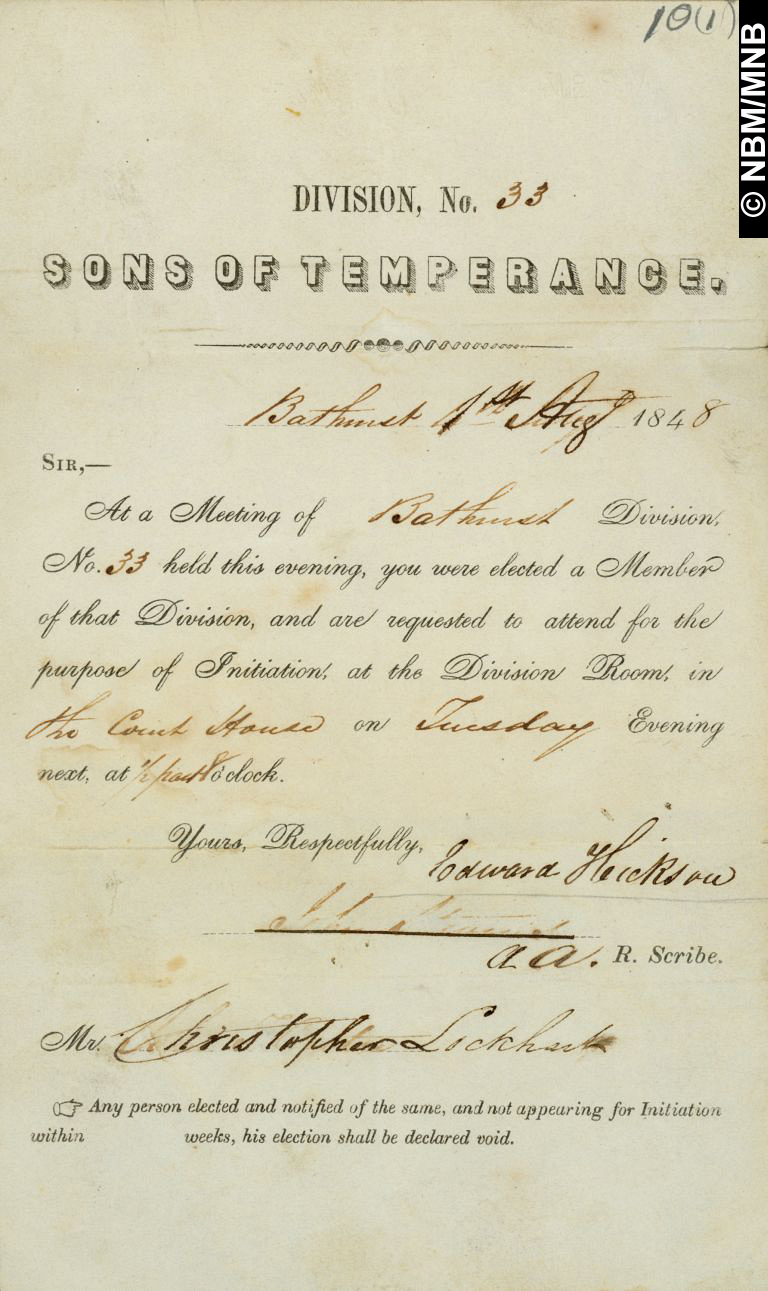 10(1)
© NBM/MNB
DIVISION, No. 33
SONS OF TEMPERANCE.
Bathurst 1st Augt 1848
SIR,—
At a Meeting of Bathurst Division,
No. 33 held this evening, you were elected a Member
of that Division, and are requested to attend for the
purpose of Initiation, at the Division Room, in
the Court House on Tuesday Evening
next, at ½ past 8 o'clock.
Yours, Respectfully,
Edward Hickson
a a. R. Scribe.
Mr. Christopher Lockhart
☞ Any person elected and notified of the same, and not appearing for Initiation
within weeks, his election shall be declared void.